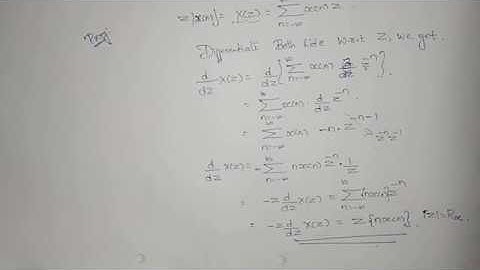 Z{x(n)} = X(z) = ∞∑n=-∞ x(n) z
Proof
Differentiate Both side w.r.t Z, we get.
d/dz X(z) = d/dz { ∞∑n=-∞ x(n) z^-n }.
= ∞∑n=-∞ x(n) d/dz z^-n
= ∞∑n=-∞ x(n) -n · z^-n-1 z^-n z^-1
d/dz X(z) = - ∞∑n=-∞ n x(n) z^-n · 1/z
= -z d/dz X(z) = ∞∑n=-∞ {n x(n)} z^-n
= -z d/dz X(z) = Z{n x(n)}.